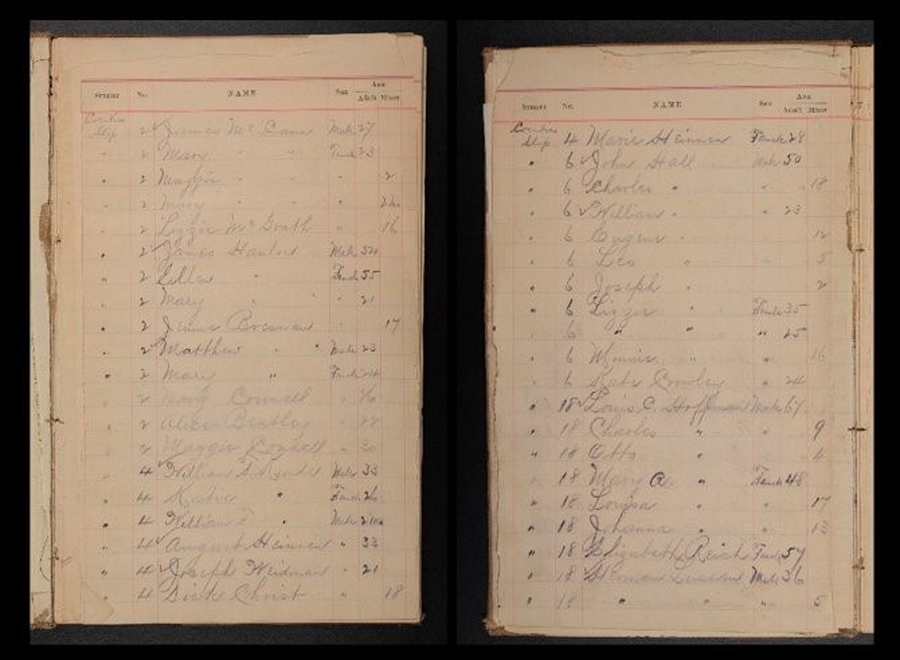 STREET No. NAME Sex Age
Adult Minor
Coenties
Slip 2 James McCann Male 27
" 2 Mary " " Female 23
" 2 Maggie " " 2
" 2 Mary " "
" 2 Lizzie McGrath " 16
" 2 James Male 54
" 2 Ellen " Female 55
" 2 Mary " " 21
" 2 Jennie Brosnan " 17
" 2 Matthew " " Male 23
" 2 Mary " Female 24
" 2 Mary Connell "
" 2 Alice "
" 2 Maggie "
" 4 William Male 33
" 4 Katie " Female 26
" 4 William " Male
" 4 August Heinnen " 33
" 4 Joseph Weidman " 21
" 4 Dick Christ " 18
STREET No. NAME Sex Age
Adult Minor
Coenties
Slip 4 Marie Heinnen Female 28
" 6 John Hall Male 50
" 6 Charles " " 18
" 6 William " " 23
" 6 Eugene " 12
" 6 Leo " " 5
" 6 Joseph " 2
" 6 Lizzie " Female 35
" 6 " " " 25
" 6 Minnie " " 16
" 6 Kate Crowley " 24
" 18 Louis C. Hoffman Male 67
" 18 Charles " " 9
" 18 Otto " " 4
" 18 Mary A. " Female 48
" 18 Louisa " " 17
" 18 Johanna " " 13
" 18 Elizabeth Reich Female 57
" 18 Herman Male 36
" 18 " " " 5